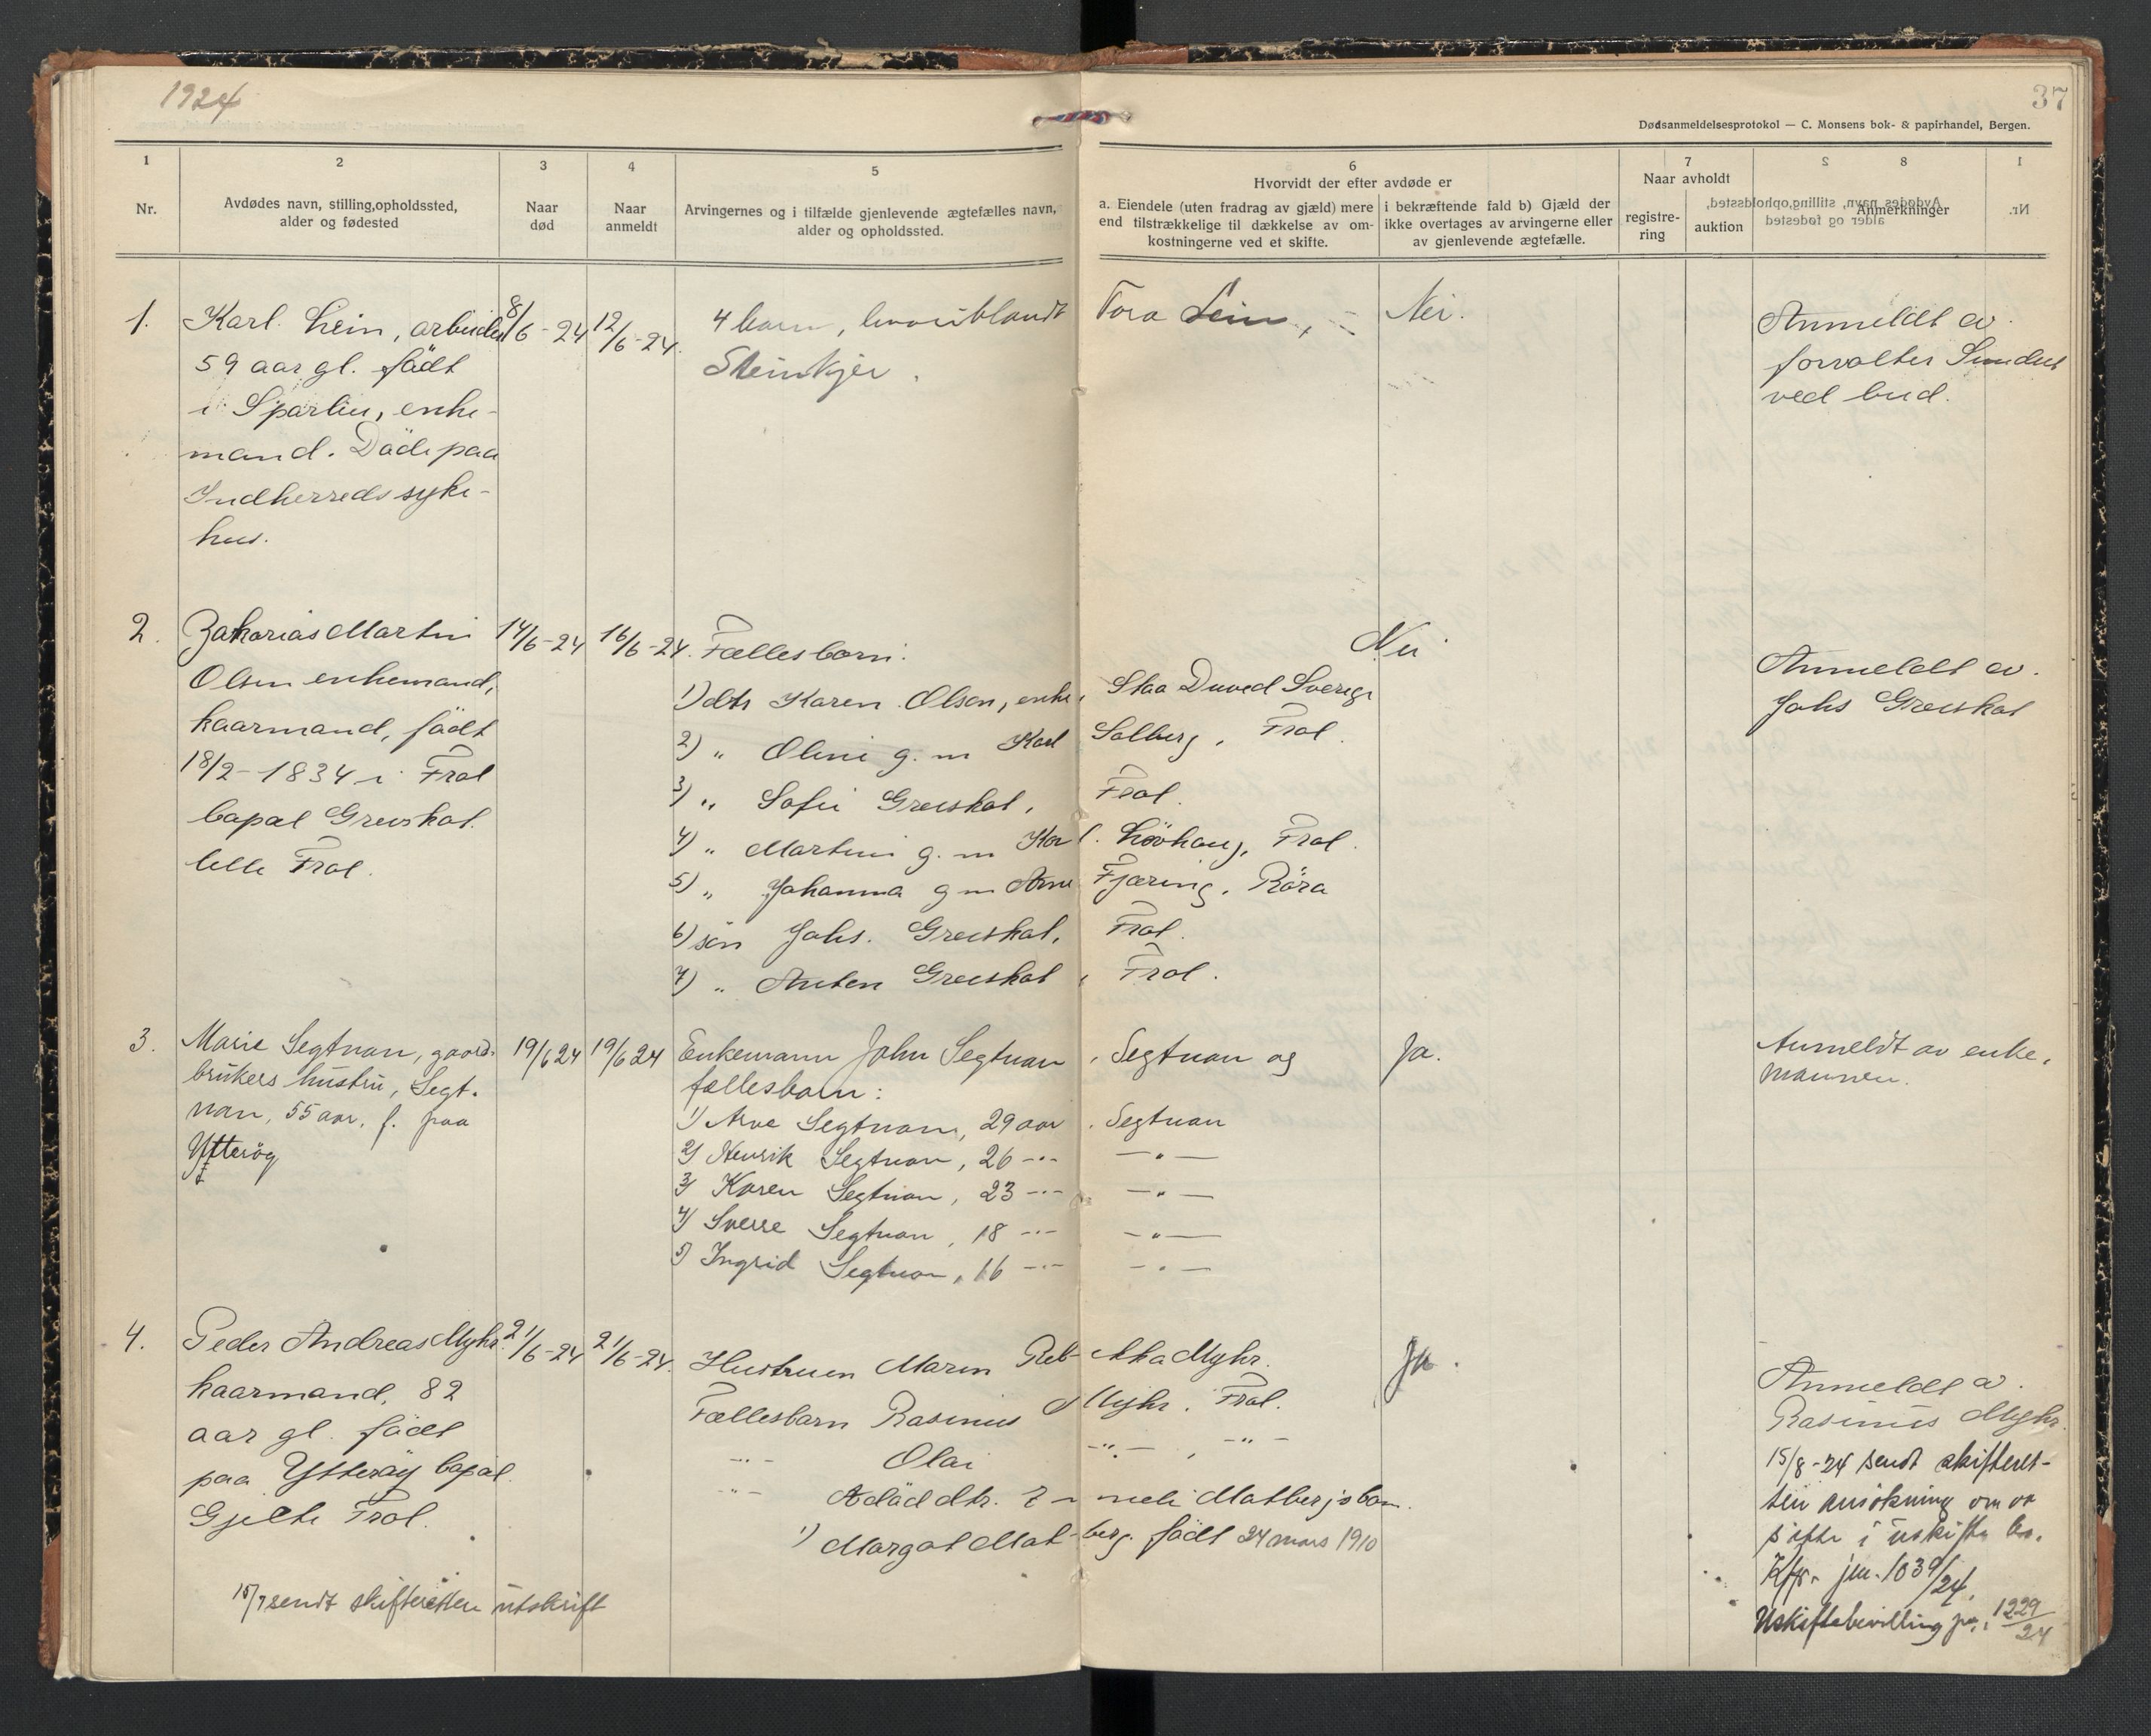 1924
37
Dødsanmeldelsesprotokol — C. Monsens bok- & papirhandel, Bergen.
1
Nr.
2
Avdødes navn, stilling, opholdssted,
alder og fødested
3
Naar
død
4
Naar
anmeldt
5
Arvingernes og i tilfælde gjenlevende ægtefælles navn,
alder og opholdssted.
6
Hvorvidt der efter avdøde er
a. Eiendele (uten fradrag av gjæld) mere
end tilstrækkelige til dækkelse av om-
kostningerne ved et skifte.
i bekræftende fald b) Gjæld der
ikke overtages av arvingerne eller
av gjenlevende ægtefælle.
7
Naar avholdt
registre-
ring
auktion
8
Anmerkninger
1.
Karl Lein, arbeider
59 aar gl. født
i Sparbu, enke-
mand. Døde paa
Indherreds syke-
hus.
8/6-24
12/6-24.
4 barn, hvoriblandt Tora Lein,
Steinkjer.
Nei.
Anmeldt av
forvalter Sundet
ved bud.
2.
Zakarias Martin
Olsen enkemand,
kaarmand, født
18/2-1834 i Frol
bopæl Grevskot
lille Frol.
14/6-24
16/6-24.
Fællesbarn:
1) dtr Karen Olsen, enke, Staa Duved Sverige
2) " Oline g. m Karl Solberg, Frol.
3) " Sofie Grevskot, Frol.
4) " Martine g. m Karl Løvhaug, Frol.
5) " Johanna g m Arne Fjæring, Røra
6) søn Johs. Grevskot, Frol.
7) " Anton Grevskot, Frol.
Nei
Anmeldt av
Johs Grevskot
3.
Marie Segtnan, gaard-
brukers hustru, Segt-
nan, 55 aar, f. paa
Ytterøy
19/6 24
19/6 24
Enkemann John Segtnan, Segtnan og
fællesbarn:
1) Arve Segtnan, 29 aar, Segtnan
2) Henrik Segtnan, 26 -"- —"—
3) Karen Segtnan, 23 -"- —"—
4) Sverre Segtnan, 18 -"- —"—
5) Ingrid Segtnan, 16 -"- —"—
Ja.
Anmeldt av enke-
mannen.
4.
Peder Andreas Myhr
kaarmand, 82
aar gl. født
paa Ytterøy bopæl
Gjelte Frol.
21/6-24
21/6-24.
Hustruen Maren Rebekka Myhr.
Fællesbarn Rasmus Myhr, Frol.
-"- Olai -"- , -"-
-"- Adød dtr. Matbergs barn.
1) Margot Matberg. født 24 mars 1910
Ja.
Anmeldt av
Rasmus Myhr.
15/8-24 sendt skifteret-
ten ansøkning om at
sitte i uskifte bo.
Kfr. jnr. 1039/24.
Uskiftebevilling jnr. 1229/24
15/7 sendt skifteretten utskrift